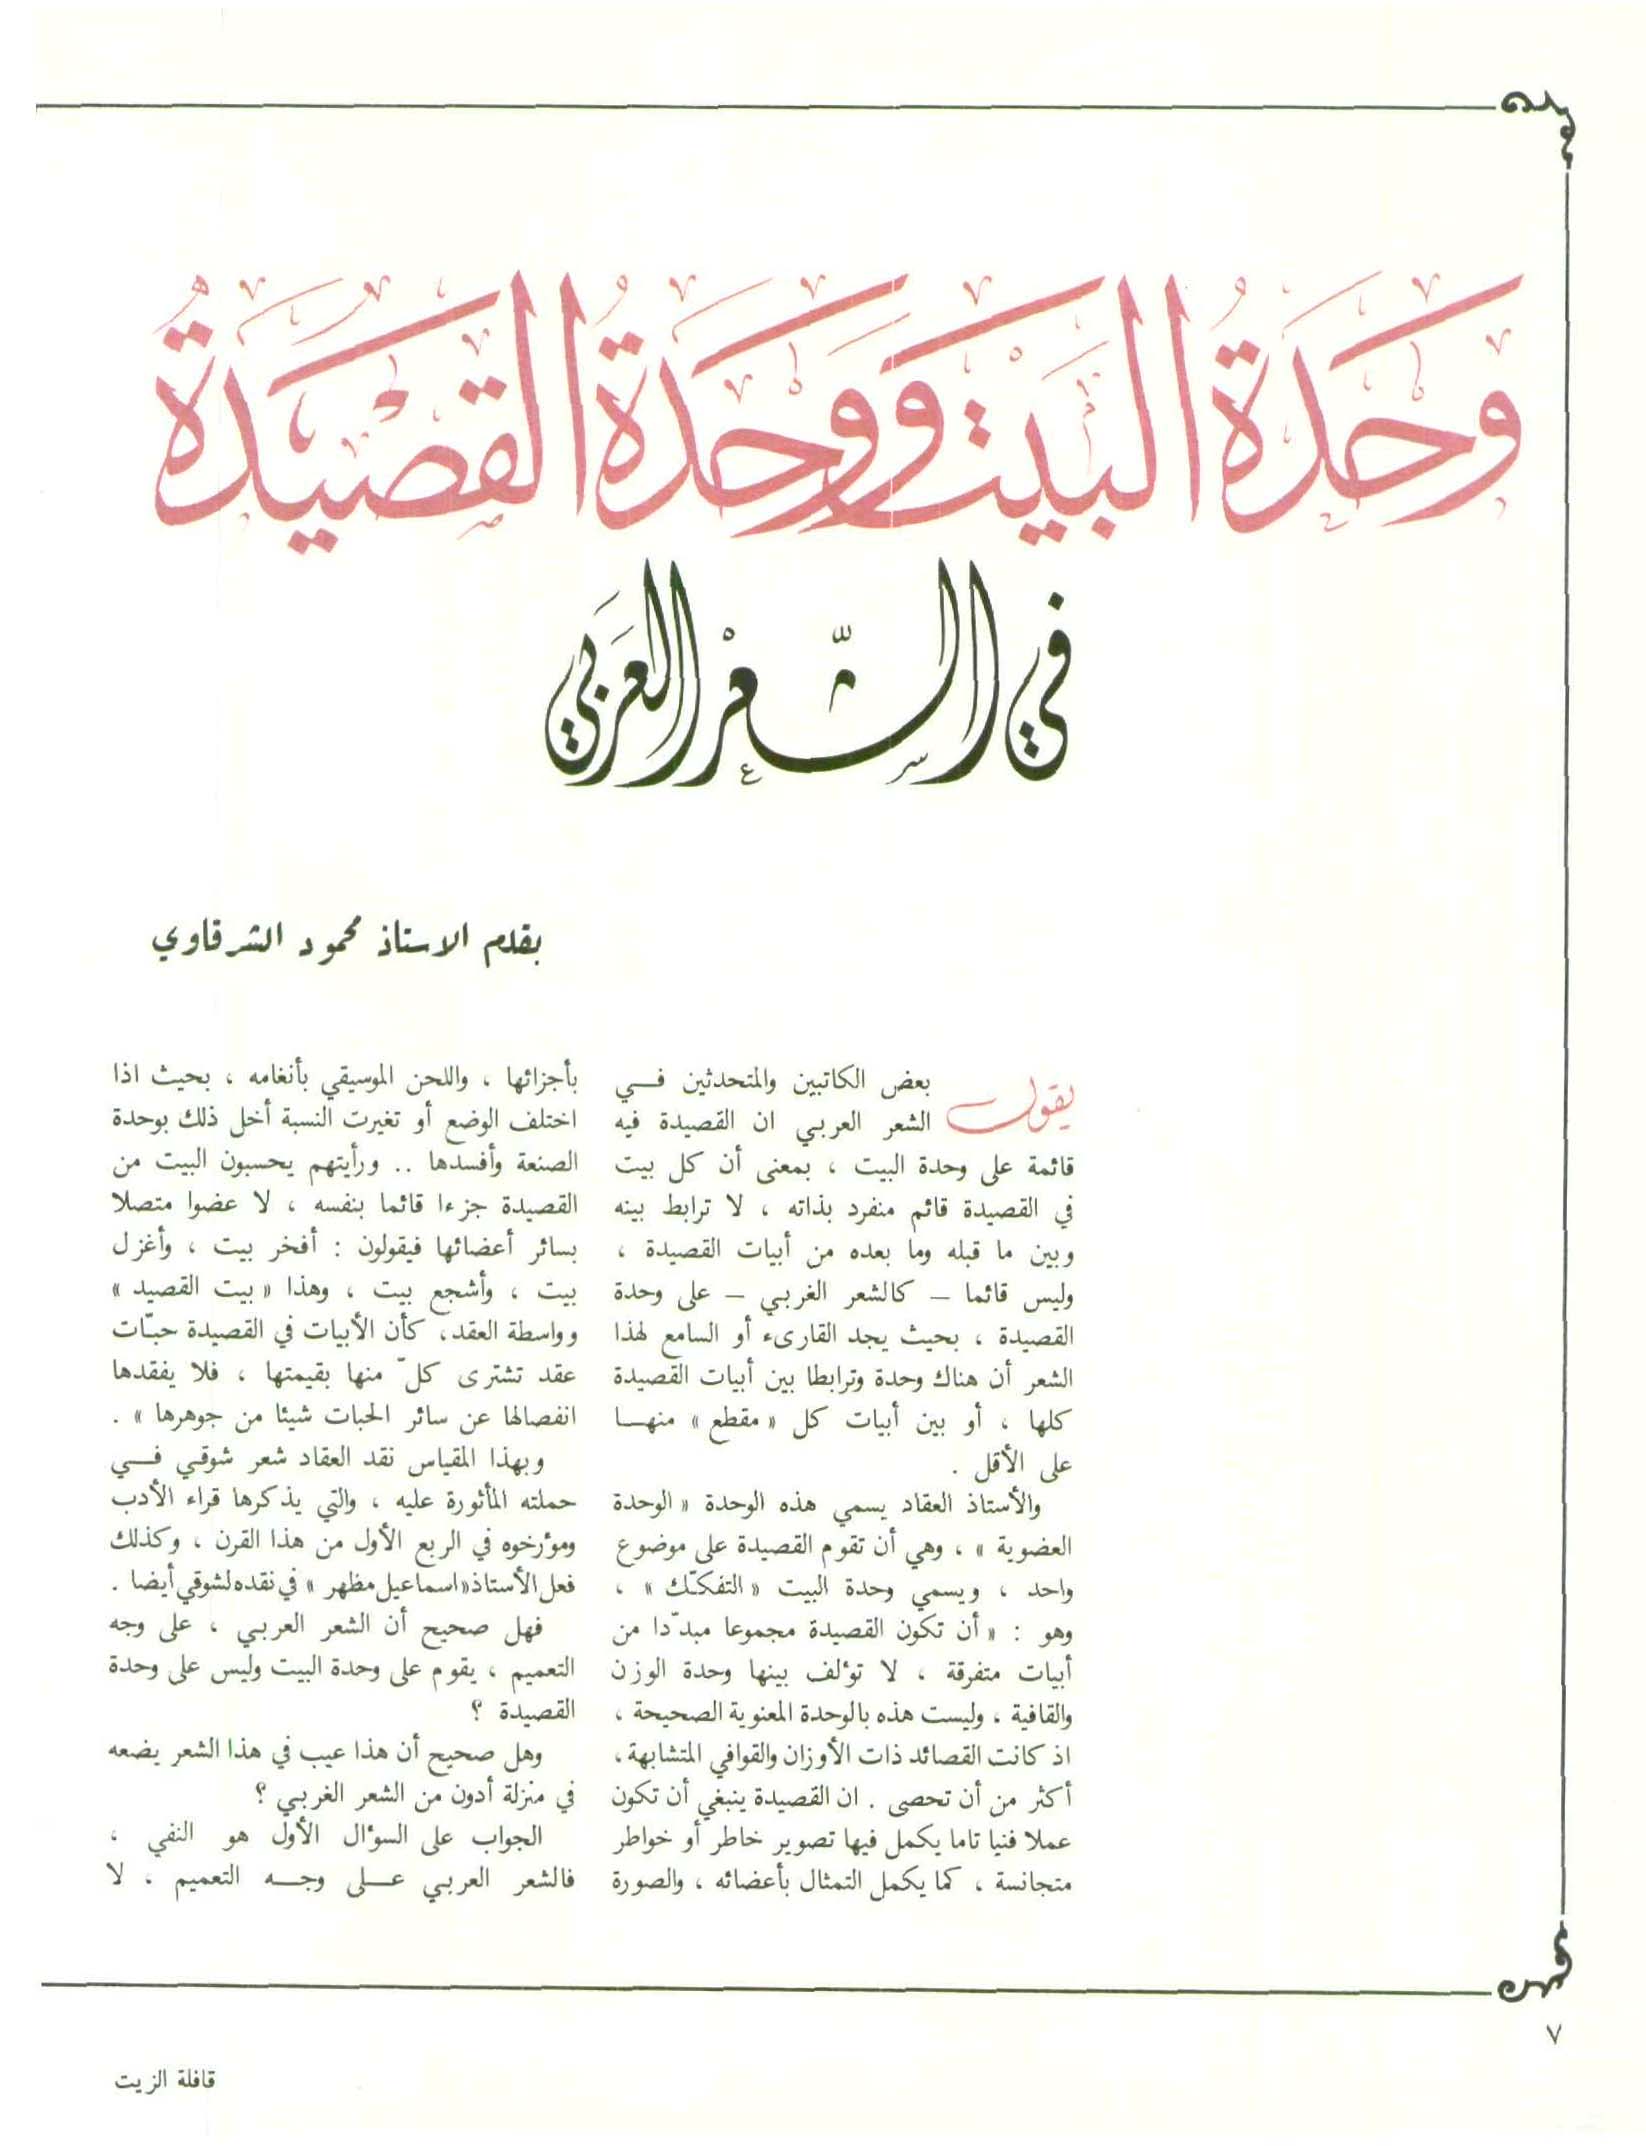 وحدة البيت ووحدة القصيدة
في الشعر العربي
بقلم الاستاذ محمود الشرقاوي
يقول بعض الكاتبين والمتحدثين في
الشعر العربي ان القصيدة فيه
قائمة على وحدة البيت ، بمعنى أن كل بيت
في القصيدة قائم منفرد بذاته ، لا ترابط بينه
وبين ما قبله وما بعده من أبيات القصيدة ،
وليس قائما – كالشعر الغربي – على وحدة
القصيدة ، بحيث يجد القارىء أو السامع لهذا
الشعر أن هناك وحدة وترابطا بين أبيات القصيدة
كلها ، أو بين أبيات كل « مقطع » منها
على الأقل .
والأستاذ العقاد يسمي هذه الوحدة « الوحدة
العضوية » ، وهي أن تقوم القصيدة على موضوع
واحد ، ويسمي وحدة البيت « التفكّك » ،
وهو : « أن تكون القصيدة مجموعا مبدّدا من
أبيات متفرقة ، لا تؤلف بينها وحدة الوزن
والقافية ، وليست هذه بالوحدة المعنوية الصحيحة ،
اذ كانت القصائد ذات الأوزان والقوافي المتشابهة ،
أكثر من أن تحصى . ان القصيدة ينبغي أن تكون
عملا فنيا تاما يكمل فيها تصوير خاطر أو خواطر
متجانسة ، كما يكمل التمثال بأعضائه ، والصورة
بأجزائها ، واللحن الموسيقي بأنغامه ، بحيث اذا
اختلف الوضع أو تغيرت النسبة أخل ذلك بوحدة
الصنعة وأفسدها .. ورأيتهم يحسبون البيت من
القصيدة جزءا قائما بنفسه ، لا عضوا متصلا
بسائر أعضائها فيقولون : أفخر بيت ، وأغزل
بيت ، وأشجع بيت ، وهذا « بيت القصيد »
وواسطة العقد، كأن الأبيات في القصيدة حبّات
عقد تشترى كلّ منها بقيمتها ، فلا يفقدها
انفصالها عن سائر الحبات شيئا من جوهرها » .
وبهذا المقياس نقد العقاد شعر شوقي في
حملته المأثورة عليه ، والتي يذكرها قراء الأدب
ومؤرخوه في الربع الأول من هذا القرن ، وكذلك
فعل الأستاذ «اسماعيل مظهر » في نقده لشوقي أيضا .
فهل صحيح أن الشعر العربي ، على وجه
التعميم ، يقوم على وحدة البيت وليس على وحدة
القصيدة ؟
وهل صحيح أن هذا عيب في هذا الشعر يضعه
في منزلة أدون من الشعر الغربي ؟
الجواب على السؤال الأول هو النفي ،
فالشعر العربي على وجه التعميم ، لا
٧
قافلة الزيت